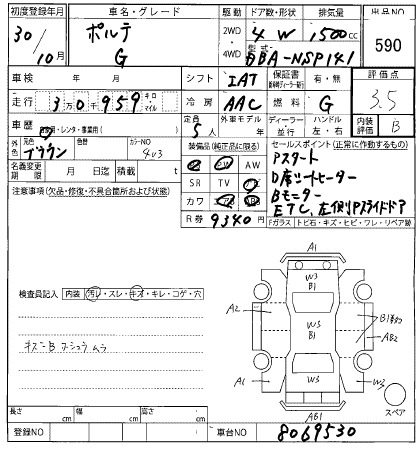 初度登録年月 車名・グレード 駆動 ドア数・形状 排気量 出品NO
30/10月 ポルテ G 2WD 4WD 4 W 1500cc 590
型式 DBA-NSP141
車検 年 月 シフト IAT 保証書 有・無 評価点 3.5
走行 3万0千959 キロ・マイル 冷房 AAC 燃料 G
車歴 自家用・レンタ・事業用( ) 定員 5人 外車モデル ディーラー 並行 ハンドル 左・右 内装評価 B
外色 元色 ブラウン 色替 カラーNO 4U3 装備品(純正品に限る) セールスポイント(正常に作動するもの)
名義変更期限 月 日迄 積載 t SR TV
Pスタート
D席シートヒーター
Bモーター
ETC, 左側Pスライドドア
注意事項(欠品・修復・不具合箇所および状態) カワ
R券 9340円 Fガラス トビ石・キズ・ヒビ・ワレ・リペア跡
A1
検査員記入 内装 汚レ・スレ・キズ・キレ・コゲ・穴
W3
B1
A2
W3
B1
AB2
キズ
A1
W3
W3
スペア
AB1
長さ cm 幅 cm 高さ cm
登録NO 車台NO 8069530